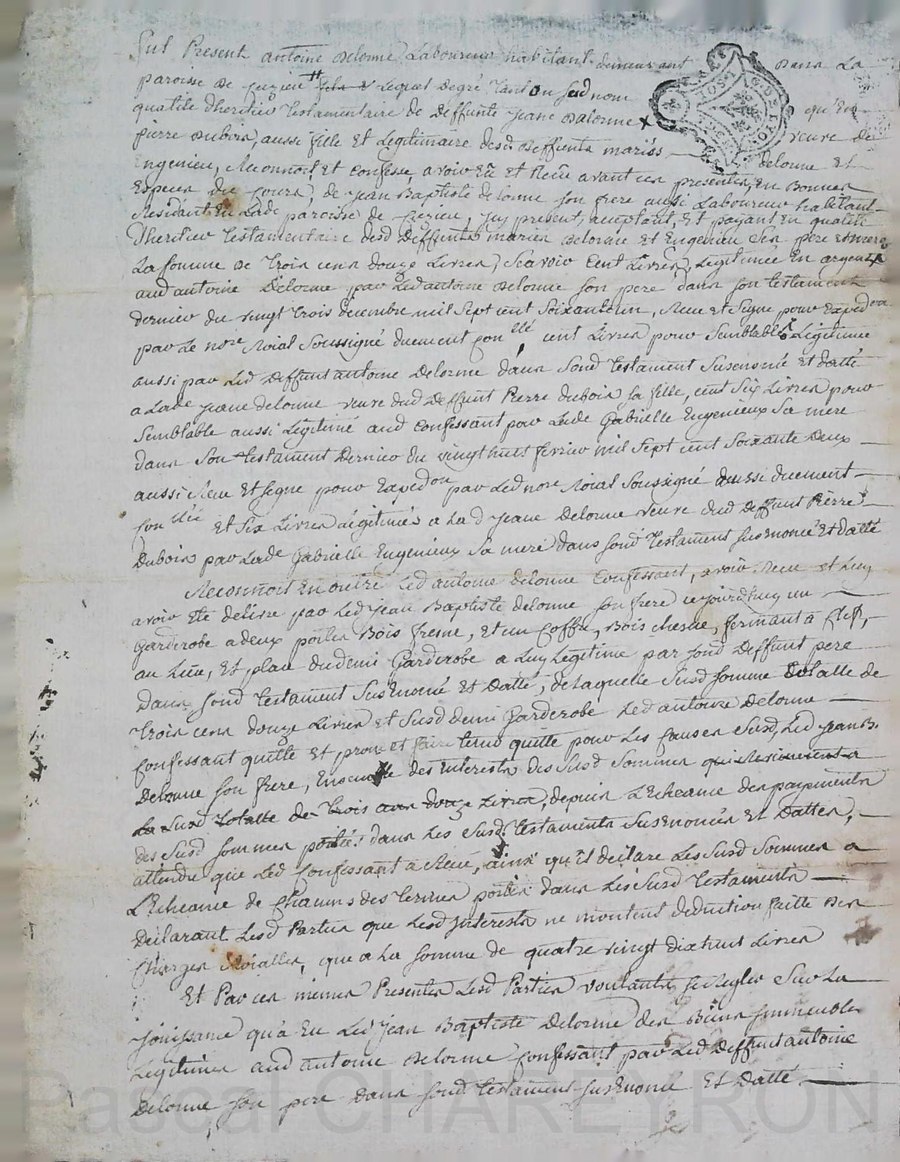 Fut Present antoine Delorme Laboureur habitant demeurant dans La
paroisse de frezieu lequel Degré tant en sud nom
qualité dheritier Testamentaire de Deffunte jeane Delorme x qu'en
pierre Dubois, aussi fille et Legitimaire desd Deffunts mariés veuve de
Engenieu, Reconnoit et confesse avoir Eû et Reçu avant ces presentes, En Bonnes Delorme et
Especes du Cours, de jean Baptiste delorme son frere aussi Laboureur habitant
Residant En Lade paroisse de frezieu, jcy present, acceptant, Et payant En qualité
Dheritier Testamentaire desd Deffunts mariés delorme et Engenieu Ses pere et mere
La somme de Trois cens douze Livres, Scavoir Cent Livres, Legitimée En argent
aud antoine Delorme par Led antoine delorme son pere dans son testament
dernier du vingt Trois decembre mil Sept cent Soixante un, Reçu et Signe pour Expedon
par Le nore Roial Soussigné duement conllé, cent Livres pour Semblable Légitimée
aussi par Led Deffunt antoine Delorme dans Sond Testament Susenoncé Et datté
a Lade jeane delorme veuve dud Deffunt Pierre dubois sa fille, cent Six Livres pour
Semblable aussi Légitimé aud Confessant par Lade Gabrielle Engenieux Sa mere
dans Son Testament Dernier du vingt huit fevrier mil Sept cent Soixante Deux
aussi Reçu Et Signe pour Expedon par Led nore Roial Soussigné aussi duement
conllé Et Six Livres Légitimés a La d Jeane Delorme veuve dud deffunt Pierre
Dubois par Lade Gabrielle Engenieux Sa mere dans sond Testament Susenoncé Et datté
Reconnoit En outre Led antoine delorme Confessant, avoir Reçu et Luy
avoir Eté delivré par Led jean Baptiste delorme son frere cejourdhuy un
Garderobe a deux portes Bois fresne, Et un Coffre, Bois chesne, fermant à Clef,
au Lieu, Et place du demi Garderobe a Luy Légitimé par sond Deffunt pere
Dans sond Testament Susenoncé Et Datté, de Laquelle Susd somme Totalle de
Trois cens douze Livres et Susd demi Garderobe Led antoine Delorme
Confessant quitte Et promet faire tenir quitte pour Les causes Susd, Led jean B.
Delorme son frere, Ensemble des Interests des Susd Sommes qui Reviennent a
La Susd Totalle de Trois cens douze Livres, depuis L'Echeance des payements
des Susd sommes portés dans Les Susd Testaments Susenoncés Et Dattés,
attendu que Led Confessant à Reçu, ainsi qu'il déclare Les Susd Sommes a
L'Echeance de Chacuns des Termes portés dans Les Susd Testaments
Déclarant Lesd Parties que Lesd Interests ne montent deduction faitte des
Charges Roialles, que a La somme de quatre vingt dix huit Livres
Et Par ces mêmes Presentes Lesd Parties voulants se Regler Sur La
Jouissance qu'a Eu Led jean Baptiste Delorme des Biens Jmmeubles
Légitimés aud antoine Delorme Confessant par Led Deffunt antoine
Delorme son pere dans sond Testament Susenoncé Et Datté
Pascal CHAREYRON